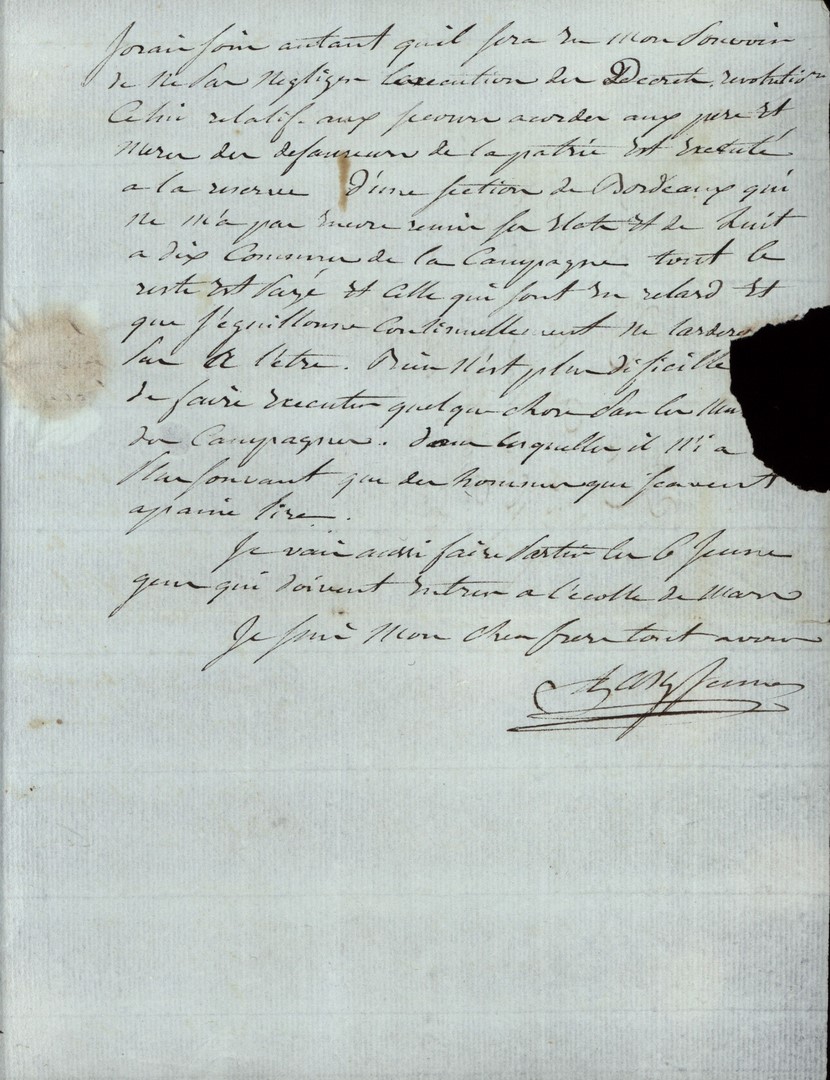 J'orai soin autant qu'il sera en mon Pouvoir
de ne Pas négliger L'execution des Decrets revolution
Celui relatif aux secours acorder aux pere et
meres des defanseurs de la patrie est executé
a la reserve d'une section de Bordeaux qui
ne m'a pas encore remis ses etats et de huit
a dix Communes de la Campagne tout le
reste est Payé et celle qui sont en retard et
que j'eguillonne Continuellement ne tardero
Pas A l'être. Rien n'est plus dificille
de faire executer quelque chose dans les Mu
des Campagnes. dans lesquelles il n'i a
Plus souvant que des hommes qui scavent
apaine lire.
Je vais aussi faire Partir les 6 Jeune
gens qui doivent entrer a l'ecolle de Mars
Je suis mon cher frere tout a vous
Jeune